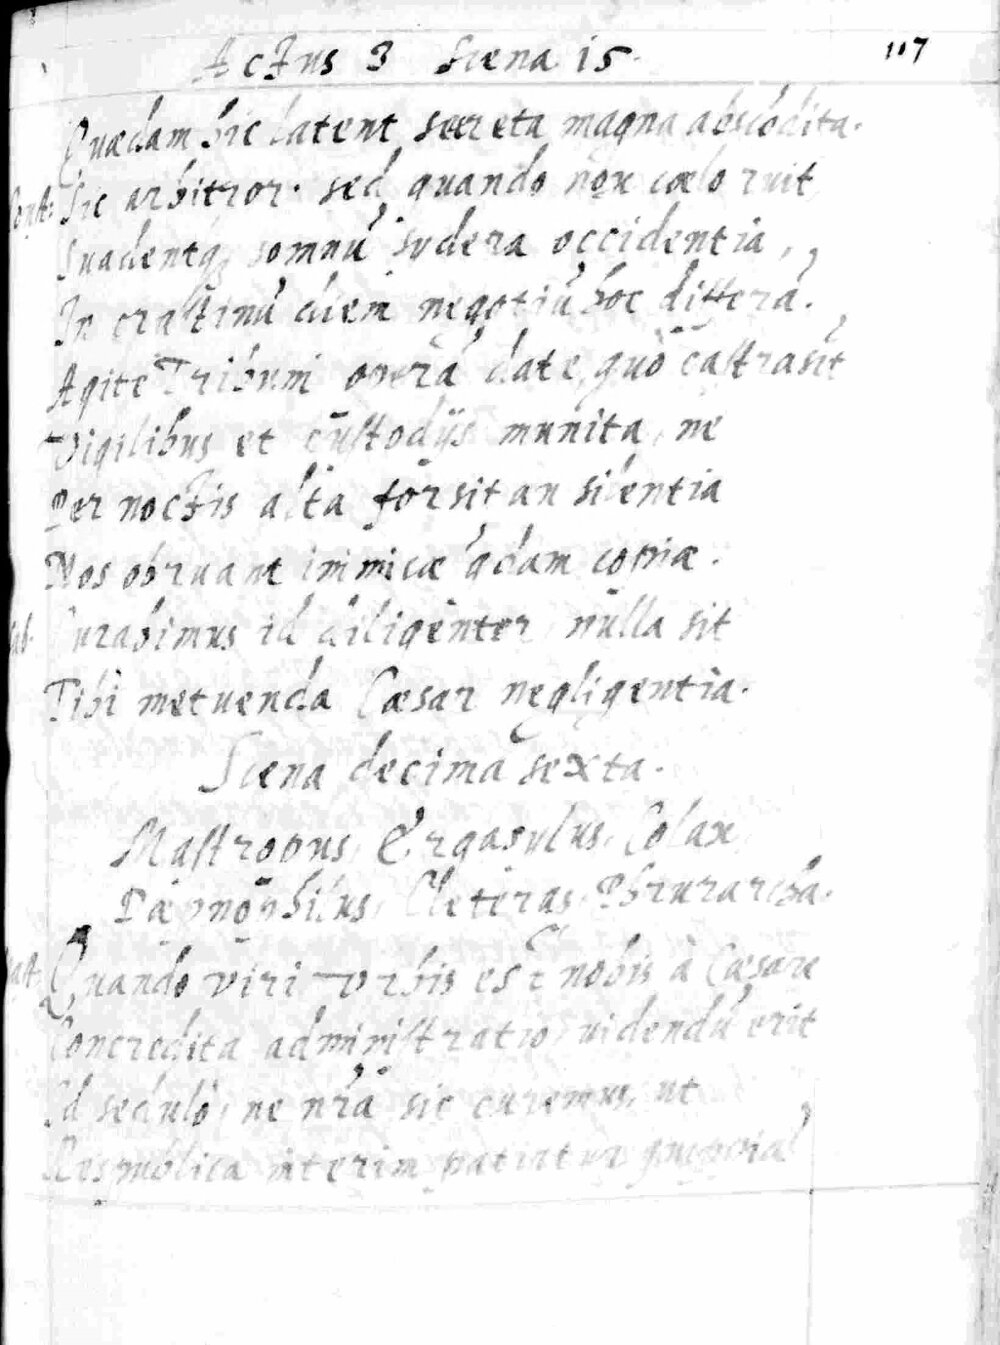 Actus 3 Scena 15. 117
Quædam hic latent secreta magna abscõdita.
Const: Sic arbitror. sed quando nox cœlo ruit,
Suadentq; somnũ sydera occidentia,
In crastinũ diem negotiũ hoc differã.
Agite Tribuni operã date, quò castra sĩt
Vigilibus et custodijs munita, ne
Per noctis alta forsitan silentia
Nos obruant inimicæ q̃dam copiæ.
Curabimus id diligenter, nulla sit
Tibi metuenda Cæsar negligentia.
Scena decima sexta.
Mastropus, Ergasylus, Colax,
Pægnophilus, Cleteras, Phrurarcha.
Mast. Quando viri Vrbis est nobis à Cæsare
Concredita administratio, uidendũ erit
Id sedulò, ne nr̃a sic curemus, ut
Respublica interim patiatur